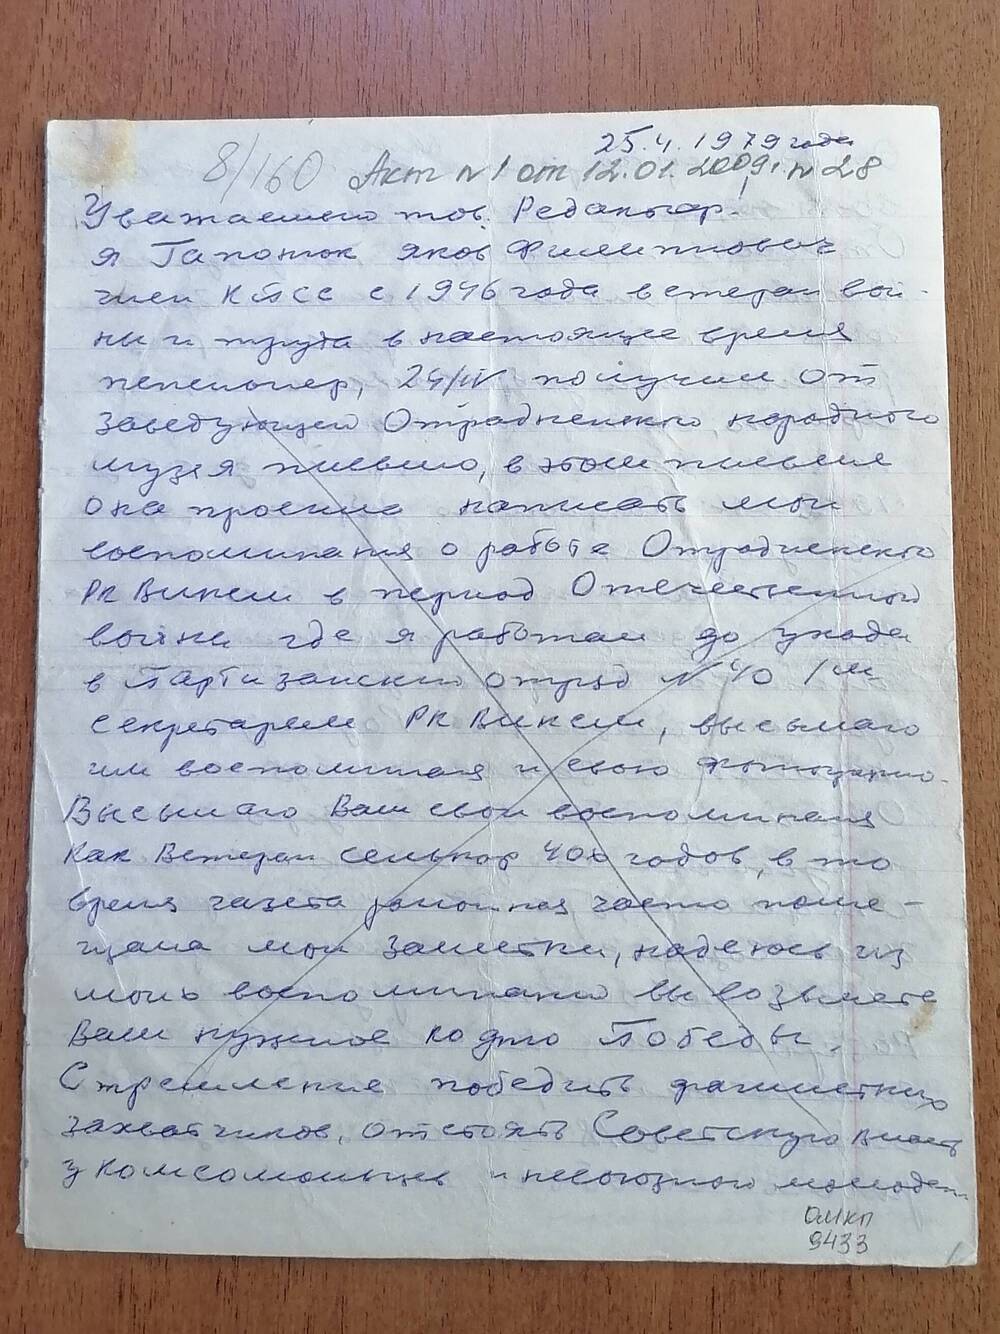 25.4.1979 года
8/160 Акт №1 от 12.01.2009г. №28
Уважаемый тов. Редактор.
я Гапонюк Яков Филиппович
член КПСС с 1946 года ветеран вой-
ны и труда в настоящее время
пенсионер, 24/IV получил от
заведующей Отрадненского народного
музея письмо, в этом письме
она просила написать мои
воспоминания о работе Отрадненского
РК ВЛКСМ в период Отечественной
войны где я работал до ухода
в Партизанский отряд №40 1м
секретарем РК ВЛКСМ, высылаю
им воспоминая и свою фотографию.
Высылаю Вам свои воспоминая
как Ветеран селькор 40х годов, в то
время газета районная часто поме-
щала мои заметки, надеюсь из
моих воспоминаний вы возьмете
Вам нужное ко дню Победы.
Стремление победить фашистких
захватчиков, отстоять Советскую власть
у комсомольцев и несоюзной молодежи
ОМКП
9433
1